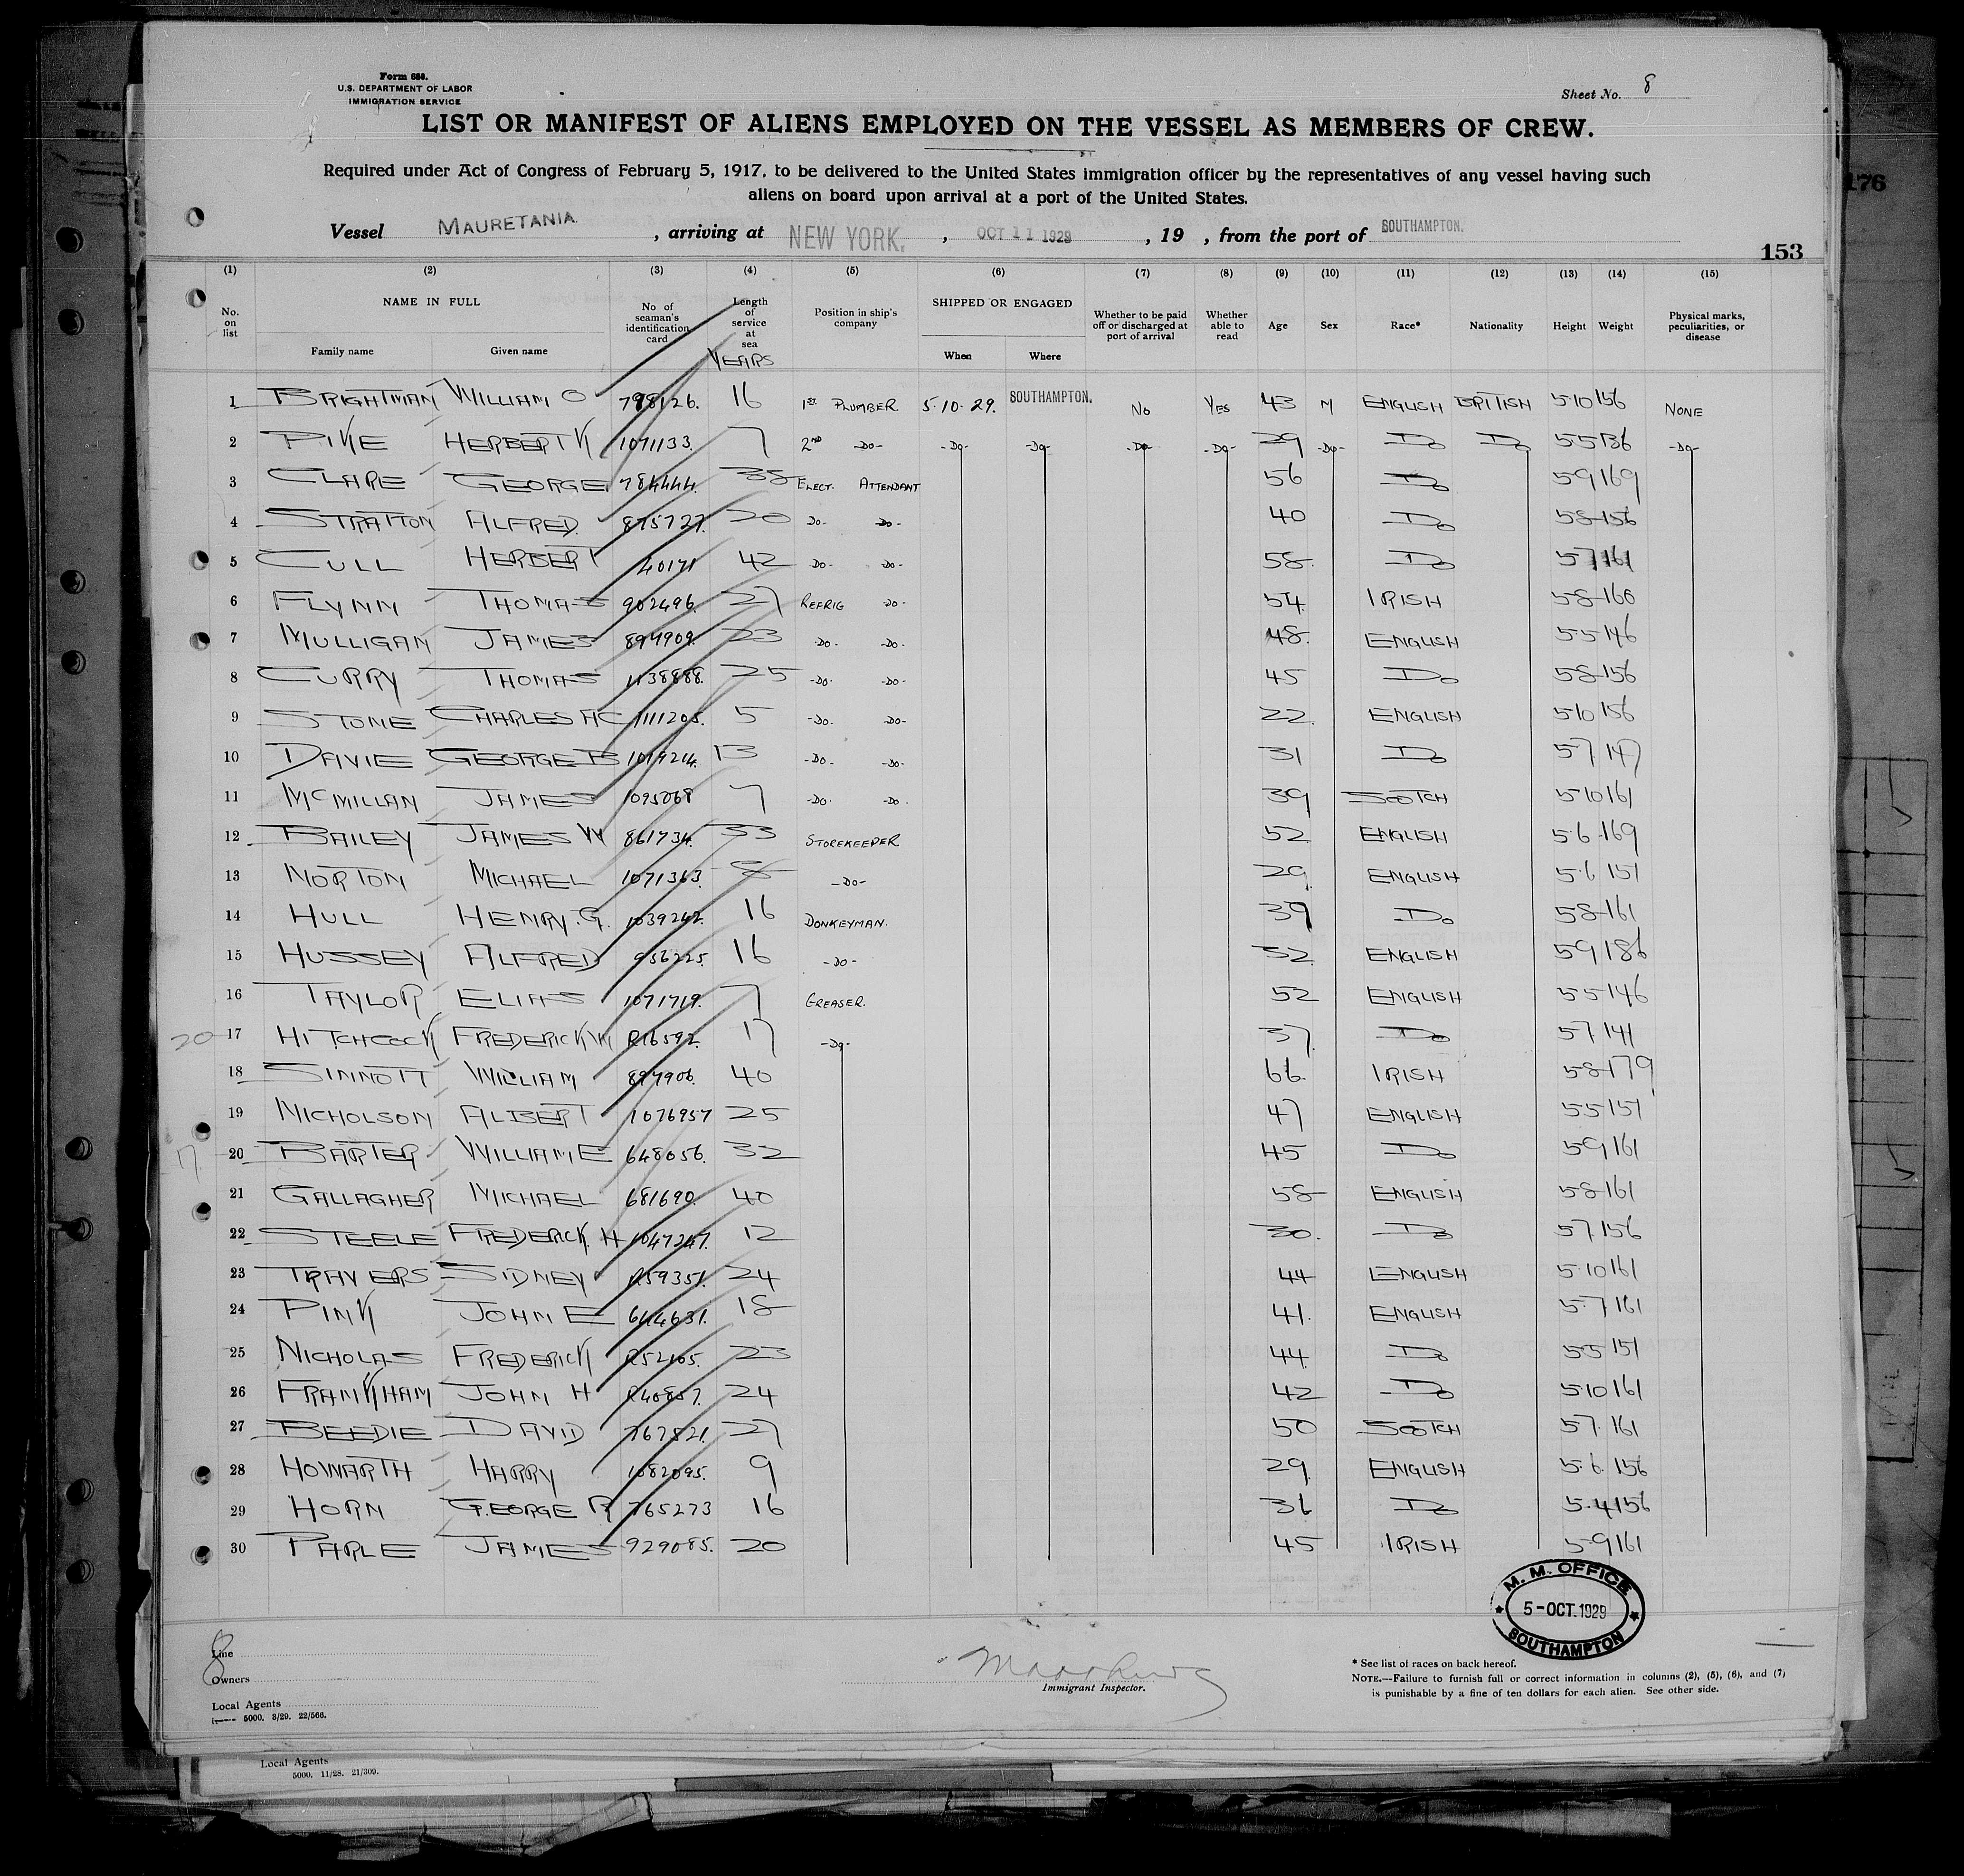 Form 680.
U.S. DEPARTMENT OF LABOR
IMMIGRATION SERVICE
Sheet No. 8
LIST OR MANIFEST OF ALIENS EMPLOYED ON THE VESSEL AS MEMBERS OF CREW.
Required under Act of Congress of February 5, 1917, to be delivered to the United States immigration officer by the representatives of any vessel having such
aliens on board upon arrival at a port of the United States.
Vessel MAURETANIA. , arriving at NEW YORK. , OCT 11 1929 , 19 , from the port of SOUTHAMPTON.
153
176
(1) (2) (3) (4) (5) (6) (7) (8) (9) (10) (11) (12) (13) (14) (15)
No. on list NAME IN FULL Family name Given name No of seaman's identification card Length of service at sea YEARS Position in ship's company SHIPPED OR ENGAGED When Where Whether to be paid off or discharged at port of arrival Whether able to read Age Sex Race* Nationality Height Weight Physical marks, peculiarities, or disease
1 BRIGHTMAN WILLIAM O 798126. 16 1ST PLUMBER. 5.10.29. SOUTHAMPTON. NO YES 43 M ENGLISH BRITISH 5.10 156 NONE
2 PIKE HERBERT K 1071133. 7 2ND -DO- -DO- -DO- -DO- -DO- 29 -DO- DO DO 5 5 136 -DO-
3 CLARE GEORGE 784444. 38 ELECT. ATTENDANT 56 DO 5 9 169
4 STRATTON ALFRED. 875727. 20 DO- DO- 40 DO 5 8 156
5 CULL HERBERT 40171 42 DO- DO- 58. DO 5 7 161
6 FLYNN THOMAS 902496. 27 REFRIG DO- 54 IRISH 5 8 166
7 MULLIGAN JAMES 894909. 23 DO- DO- 48. ENGLISH 5 5 146
8 CURRY THOMAS 1138888. 25 -DO- -DO- 45 DO 5 8 156
9 STONE CHARLES A C 1111205. 5 -DO. DO- 22. ENGLISH 5 10 156
10 DAVIE GEORGE B 1019214. 13 -DO- -DO- 31 DO 5 7 147
11 MCMILLAN JAMES 1095068 7 -DO- DO. 39 SCOTCH 5 10 161
12 BAILEY JAMES W 861734. 33 STOREKEEPER 52 ENGLISH 5.6 169
13 NORTON MICHAEL 1071363. 8 -DO- 29 ENGLISH 5.6 151
14 HULL HENRY. G. 1039242. 16 DONKEYMAN. 39 DO 5 8 161
15 HUSSEY ALFRED 936225. 16 -DO- 32 ENGLISH 5 9 186
16 TAYLOR ELIAS 1071719. 7 GREASER. 52 ENGLISH 5 5 146
20 17 HITCHCOCK FREDERICK W R16592. 17 -DO- 37 DO 5 7 141
18 SINNOTT WILLIAM 894906. 40 66. IRISH 5 8 179
19 NICHOLSON ALBERT 1076957 25 47 ENGLISH 5 5 151
17 20 BARTER WILLIAM E 648056. 32 45 DO 5 9 161
21 GALLAGHER MICHAEL 681690. 40 58 ENGLISH 5 8 161
22 STEELE FREDERICK. H 1047247. 12 30. DO 5 7 156
23 TRAVERS SIDNEY R59351. 24 44 ENGLISH 5.10 161
24 PINK JOHN E 644631. 18 41. ENGLISH 5.7 161
25 NICHOLAS FREDERICK R52105. 23 44 DO 5 5 151
26 FRANKHAM JOHN H R40857. 24 42 DO 5 10 161
27 BEEDIE DAVID 767821. 27 50 SCOTCH 5 7. 161
28 HOWARTH HARRY 1082095. 9 29. ENGLISH 5.6. 156
29 HORN GEORGE R 765273 16 36 DO 5.4 156
30 PARLE JAMES 929085. 20 45 IRISH 5 9 161
M. M. OFFICE
5-OCT.1929
SOUTHAMPTON
8
Line
Owners
Local Agents
5000. 3/29. 22/566.
Immigrant Inspector.
* See list of races on back hereof.
NOTE.—Failure to furnish full or correct information in columns (2), (5), (6), and (7)
is punishable by a fine of ten dollars for each alien. See other side.
Local Agents
5000. 11/28. 21/309.